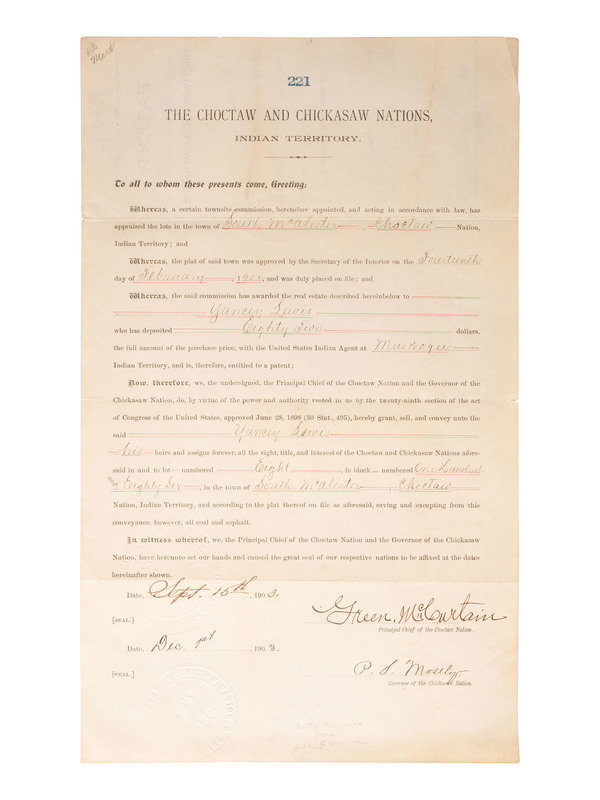 221
THE CHOCTAW AND CHICKASAW NATIONS,
INDIAN TERRITORY.
To all to whom these presents come, Greeting:
Whereas, a certain townsite commission, heretofore appointed, and acting in accordance with law, has
appraised the lots in the town of South McAlester, Choctaw Nation,
Indian Territory; and
Whereas, the plat of said town was approved by the Secretary of the Interior on the Fourteenth
day of February, 1901, and was duly placed on file; and
Whereas, the said commission has awarded the real estate described hereinbelow to
Yancey Lewis
who has deposited Eighty Two dollars,
the full amount of the purchase price, with the United States Indian Agent at Muskogee
Indian Territory, and is, therefore, entitled to a patent;
Now, therefore, we, the undersigned, the Principal Chief of the Choctaw Nation and the Governor of the
Chickasaw Nation, do, by virtue of the power and authority vested in us by the twenty-ninth section of the act
of Congress of the United States, approved June 28, 1898 (30 Stat., 495), hereby grant, sell, and convey unto the
said Yancey Lewis
his heirs and assigns forever, all the right, title, and interest of the Choctaw and Chickasaw Nations afore-
said in and to lot numbered Eight, in block numbered One Hundred
and Eighty Six, in the town of South McAlester, Choctaw
Nation, Indian Territory, and according to the plat thereof on file as aforesaid, saving and excepting from this
conveyance, however, all coal and asphalt.
In witness whereof, we, the Principal Chief of the Choctaw Nation and the Governor of the Chickasaw
Nation, have hereunto set our hands and caused the great seal of our respective nations to be affixed at the dates
hereinafter shown.
Date, Sept. 15th, 1903.
[SEAL.] Green McCurtain
Principal Chief of the Choctaw Nation.
Date, Dec 1st 1903.
[SEAL.] P. S. Mosely
Governor of the Chickasaw Nation.